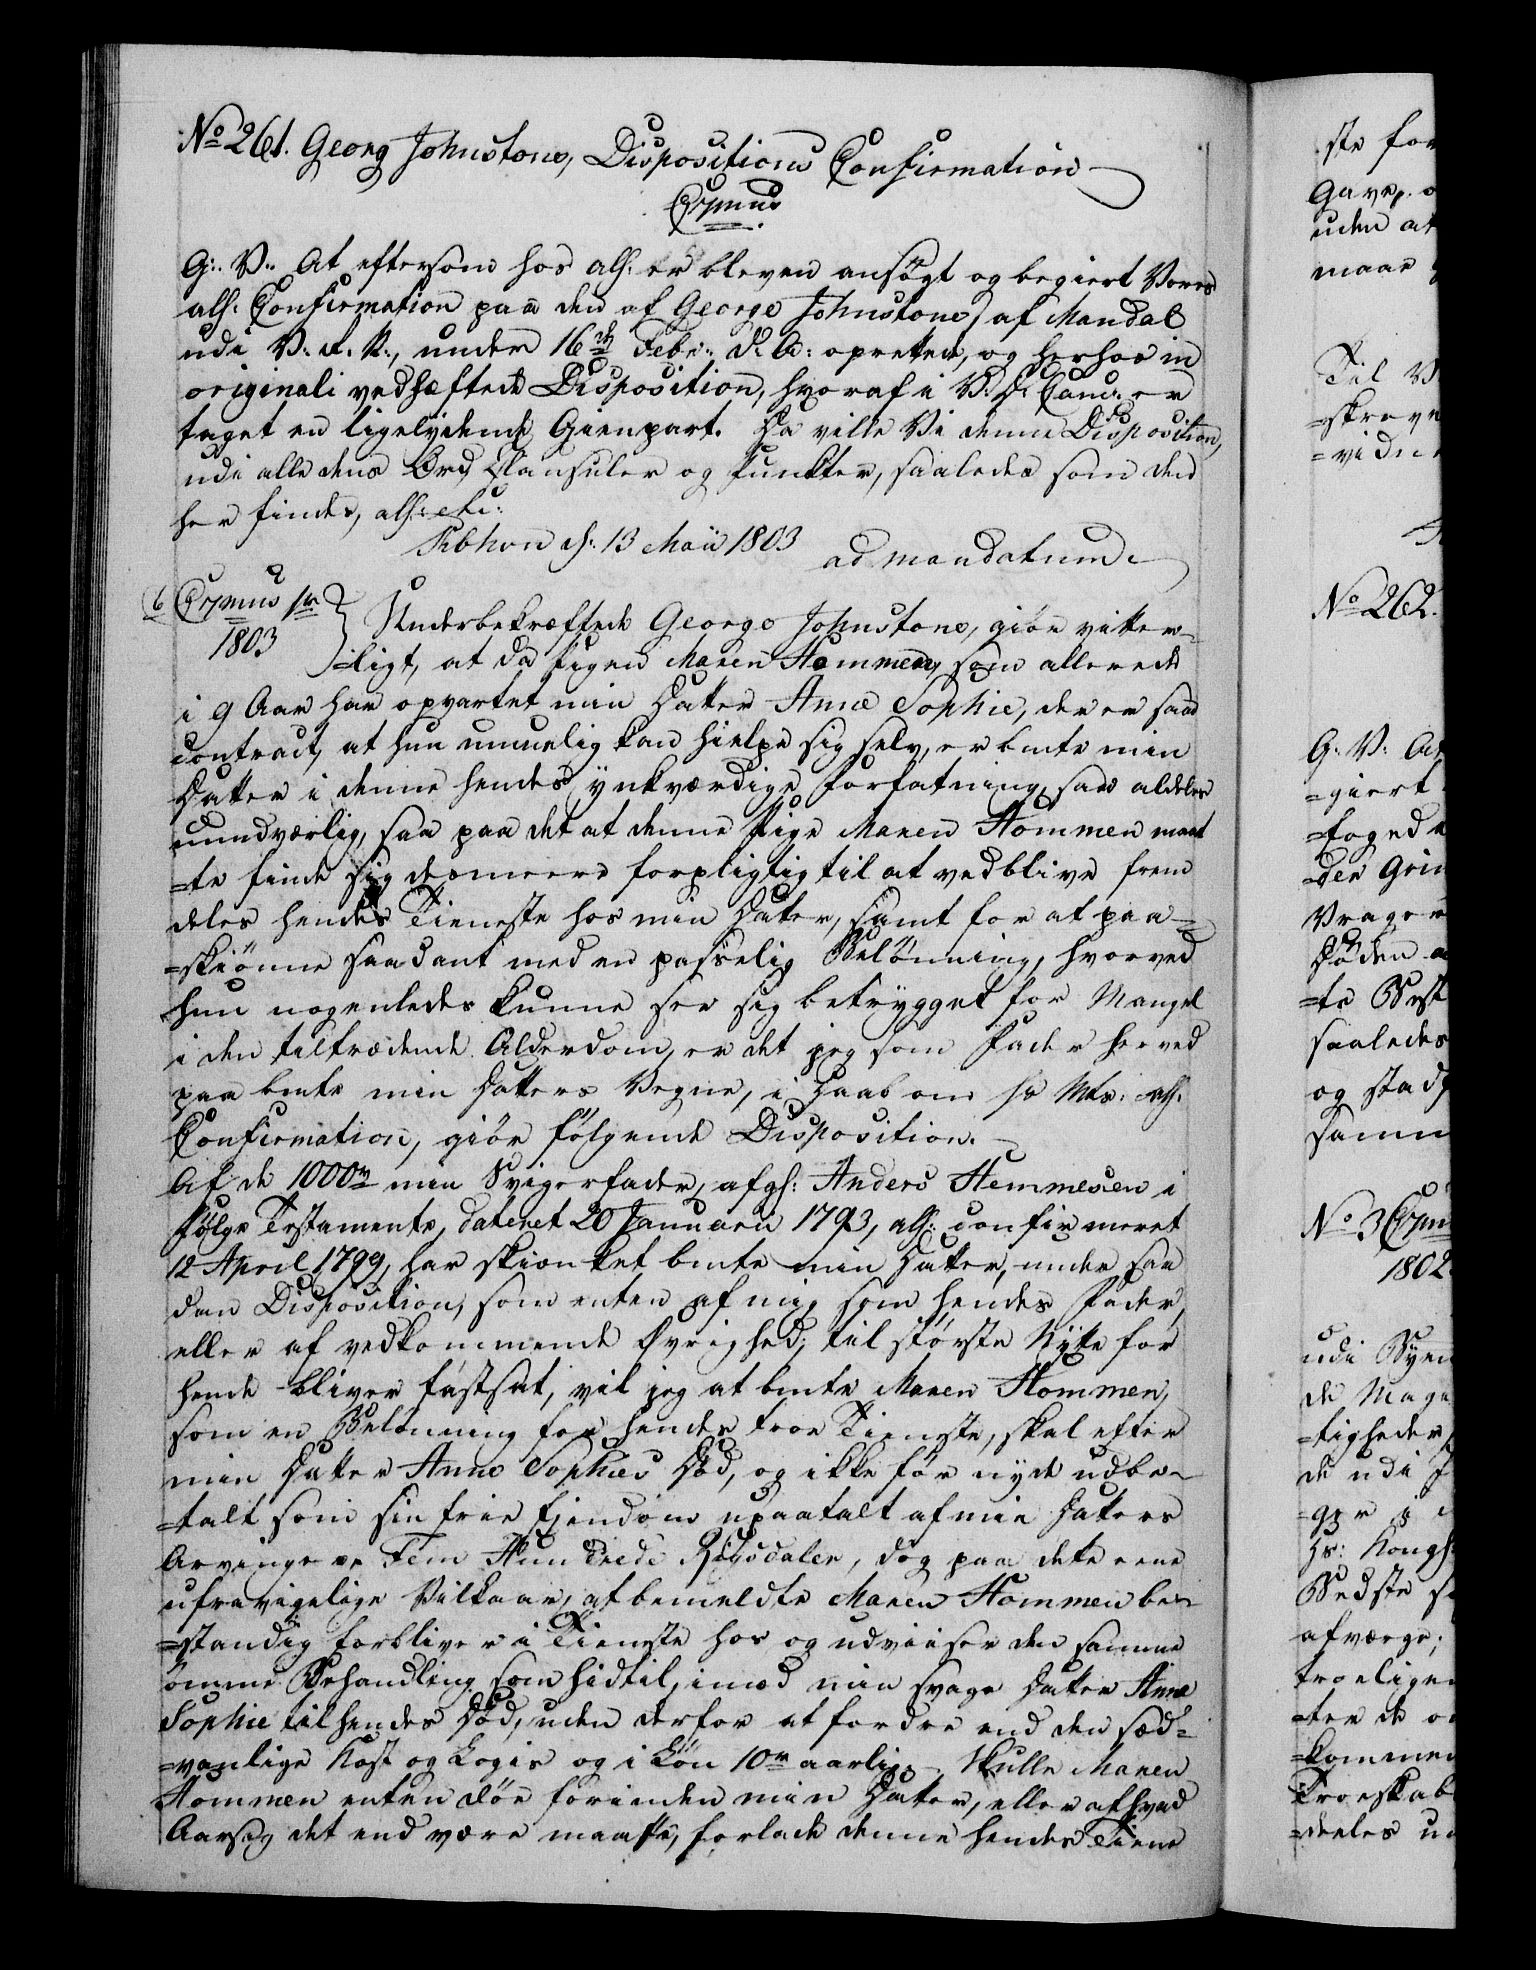 No 261. Georg Johnstons, Dispositions Confirmation
Gr7mus
G: V: At eftersom hos alh: er bleven ansögt og begiert Vores
alh: Confirmation paa den af George Johnstone, af Mandal
udi V: R: N:, under 16de Febr: d: A: oprettede, og herhos in
originali vedhæftede Disposition, hvoraf i V: D: Canc: er
taget en ligelydende Gienpart. Da ville Vi denne Disposition,
udi alle dens Ord, Clausuler og Punkter, saaledes som den
her findes, alh: etc:
Kbhvn d: 13 Maii 1803 ad mandatum
6 Gr7mus
1803
Underbekræftede George Johnstone, giör vitter-
=ligt, at da Pigen Maren Hommen, som allerede
i 9 Aar har opvartet min Datter Anne Sophie, der er saa
contract, at hun umuelig kan hielpe sig selv, er bmte min
Datter i denne hendes ynkværdige Forfatning, saa aldeles
uundværlig, saa paa det at denne Pige Maren Hommen maat
=te finde sig desmeere forpligtig til at vedblive frem
deles hendes Tieneste hos min Datter, samt for at paa-
=skiönne saadant med en passelig Belönning, hvorved
hun nogenledes kunne see sig betrygget for Mangel
i den tiltrædende Alderdom, er det jeg som Fader herved
paa bmte min Datters Vegne, i Haab om Hs Mts: alh:
Confirmation, giör fölgende Disposition.
Af de 1000rd min Svigerfader, afg: Anders Hemmesen i
Fölge Testamente, dateret 20 Januarii 1793, alh: confirmeret
12 April 1799, har skienket bmte min Datter, under saa
dan Disposition, som enten af mig som hendes Fader,
eller af vedkommende Øvrighed, til störste Nytte for
hende bliver fastsat, vil jeg at bmte Maren Hommen,
som en Belönning for hendes troe Tieneste, skal efter
min Datter Anne Sophies Död, og ikke för nyde udbe-
=talt som sin frie Ejendom upaatalt af min Datters
Arvinger Fem Hundrede Rigsdaler, dog paa dette eene
ufravigelige Vilkaar, at bemeldte Maren Hommen be-
=standig forbliver i Tieneste hos og udviiser den samme
ömme Behandling som hidtil, imod min svage Datter Anne
Sophie til hendes Död, uden derfor at fordre end den sæd-
=vanlige Kost og Logie og i Lön 10rd aarlig. Skulle Maren
Hommen enten döe forinden min Datter, eller af hvad
Aarsag det end være maatte, forlade denne hendes Tiene
ste for
Gave, o
uden at
maae
Til V
=skreve
=vidne
No 262.
G: V: At
=giert
=foged
der Grim
Vrager
Döden a
=te Best
saaledes
og stadf
samm
No 3
1802
udi Byen
de Maga
=tigheder,
de udi
=ger i
Hs: Kongl:
Bedste
afværge;
troeligen
=ter de
=kommen
Troeskab
=deeles